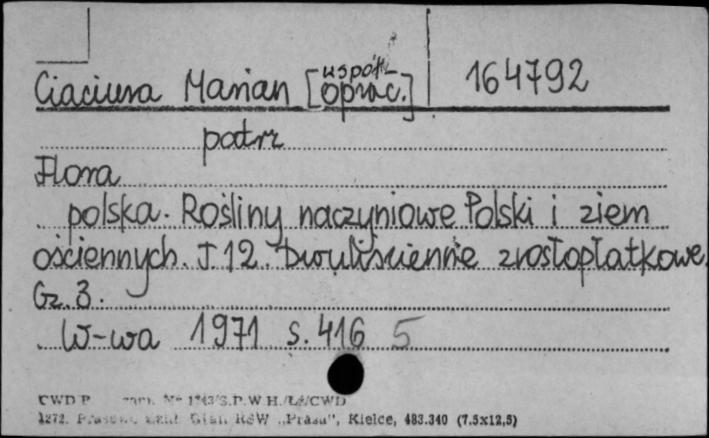 Ciaciura Marian [współ- oprac.] 164792
patrz
Flora
polska. Rośliny naczyniowe Polski i ziem
ościennych. T. 12. Dwuliścienne zrosłopłatkowe.
Cz. 3.
W-wa 1971 s. 416 5
CWD P H./Łź/CWD
1272. RSW „Prasa", Kielce, 483.340 (7.5x12,5)